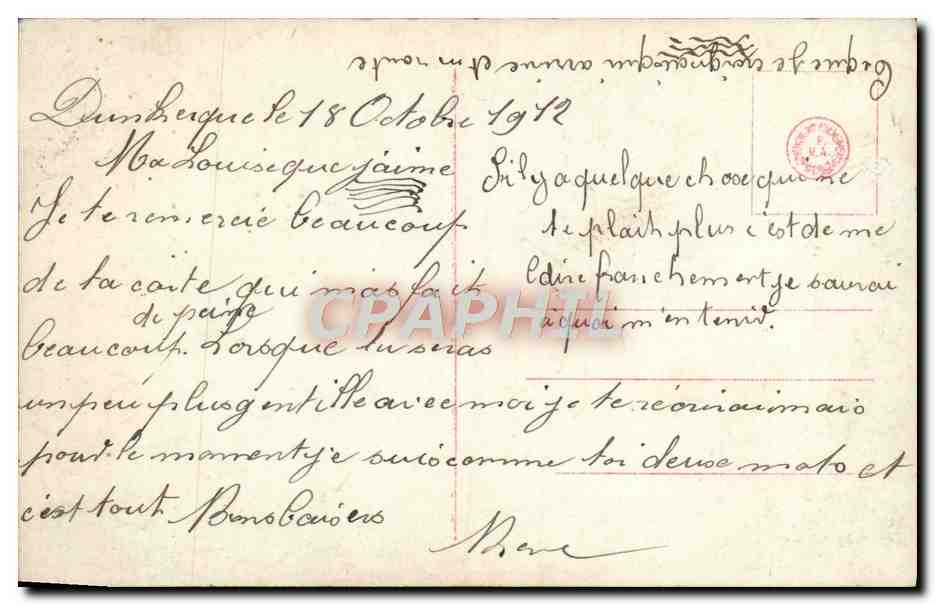 Dunkerque le 18 Octobre 1912
Ma Louise que j'aime
Je te remercie beaucoup
de ta carte qui m'as fait
de peine
beaucoup. Lorsque tu seras
un peu plus gentille avec moi je te récrirai mais
pour le moment je suis comme toi deux mots et
c'est tout Bons baisers
René
S'il y a quelque chose qui ne
te plait plus c'est de me
le dire franchement je saurai
à quoi m'en tenir.
Ce que je arrive et en route
CPAPHIL